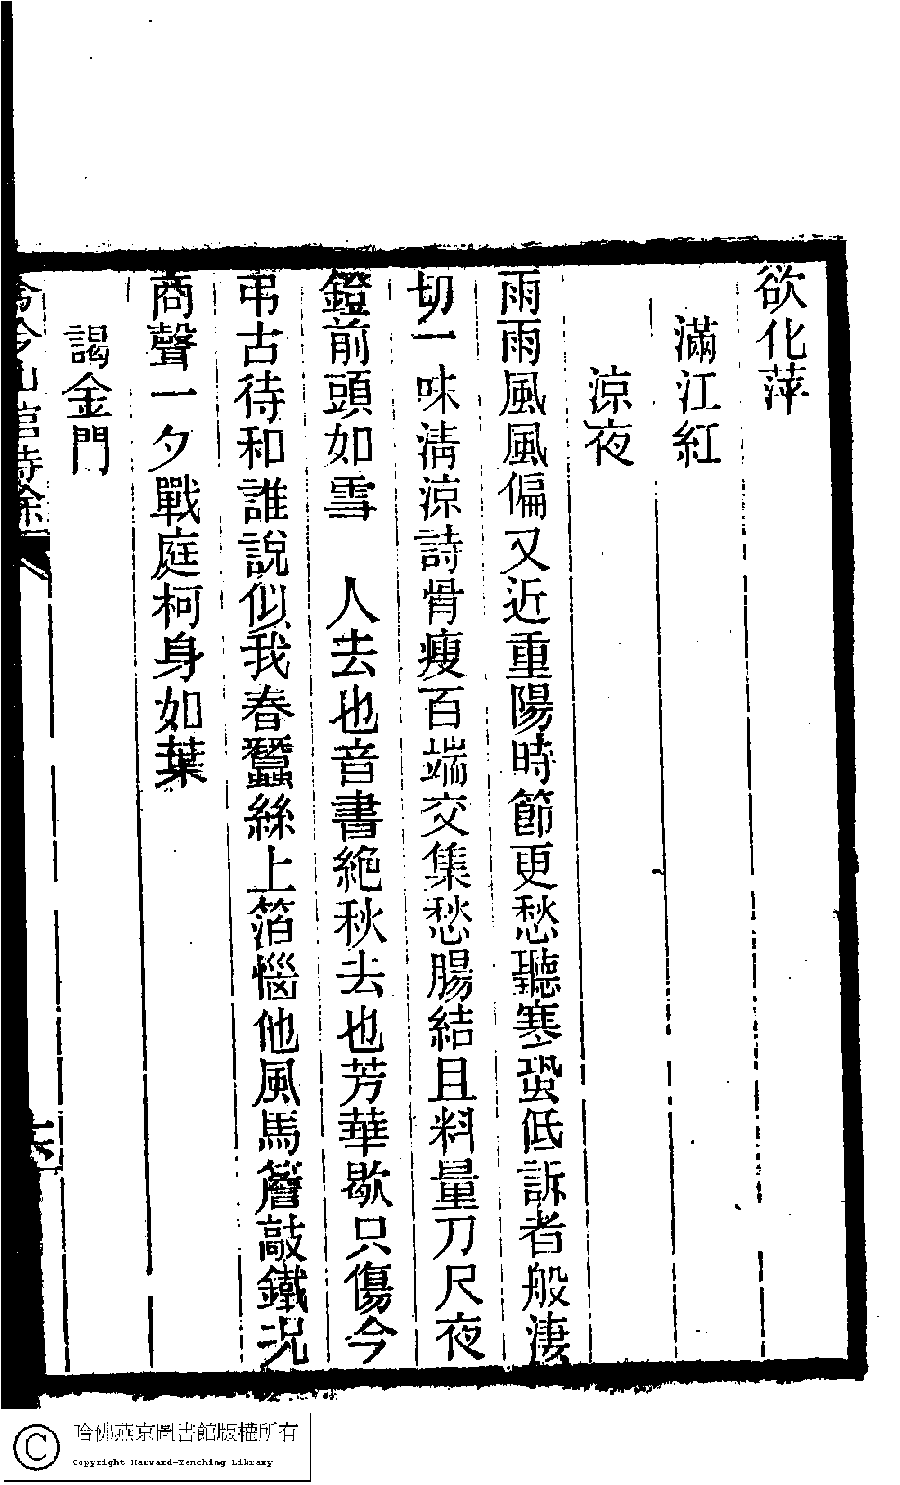 欲化萍
滿江紅
涼夜
雨雨風風偏又近重陽時節更愁聽寒蛩低訴者般淒
切一味淸涼詩骨瘦百端交集愁腸結且料量刀尺夜
鐙前頭如雪　人去也音書絶秋去也芳華歇只傷今
弔古待和誰說似我春蠶絲上箔惱他風馬簷敲鐵况
商聲一夕戰庭柯身如葉
謁金門
哈佛燕京圖書館版權所有
Copyright Harvard-Yenching Library